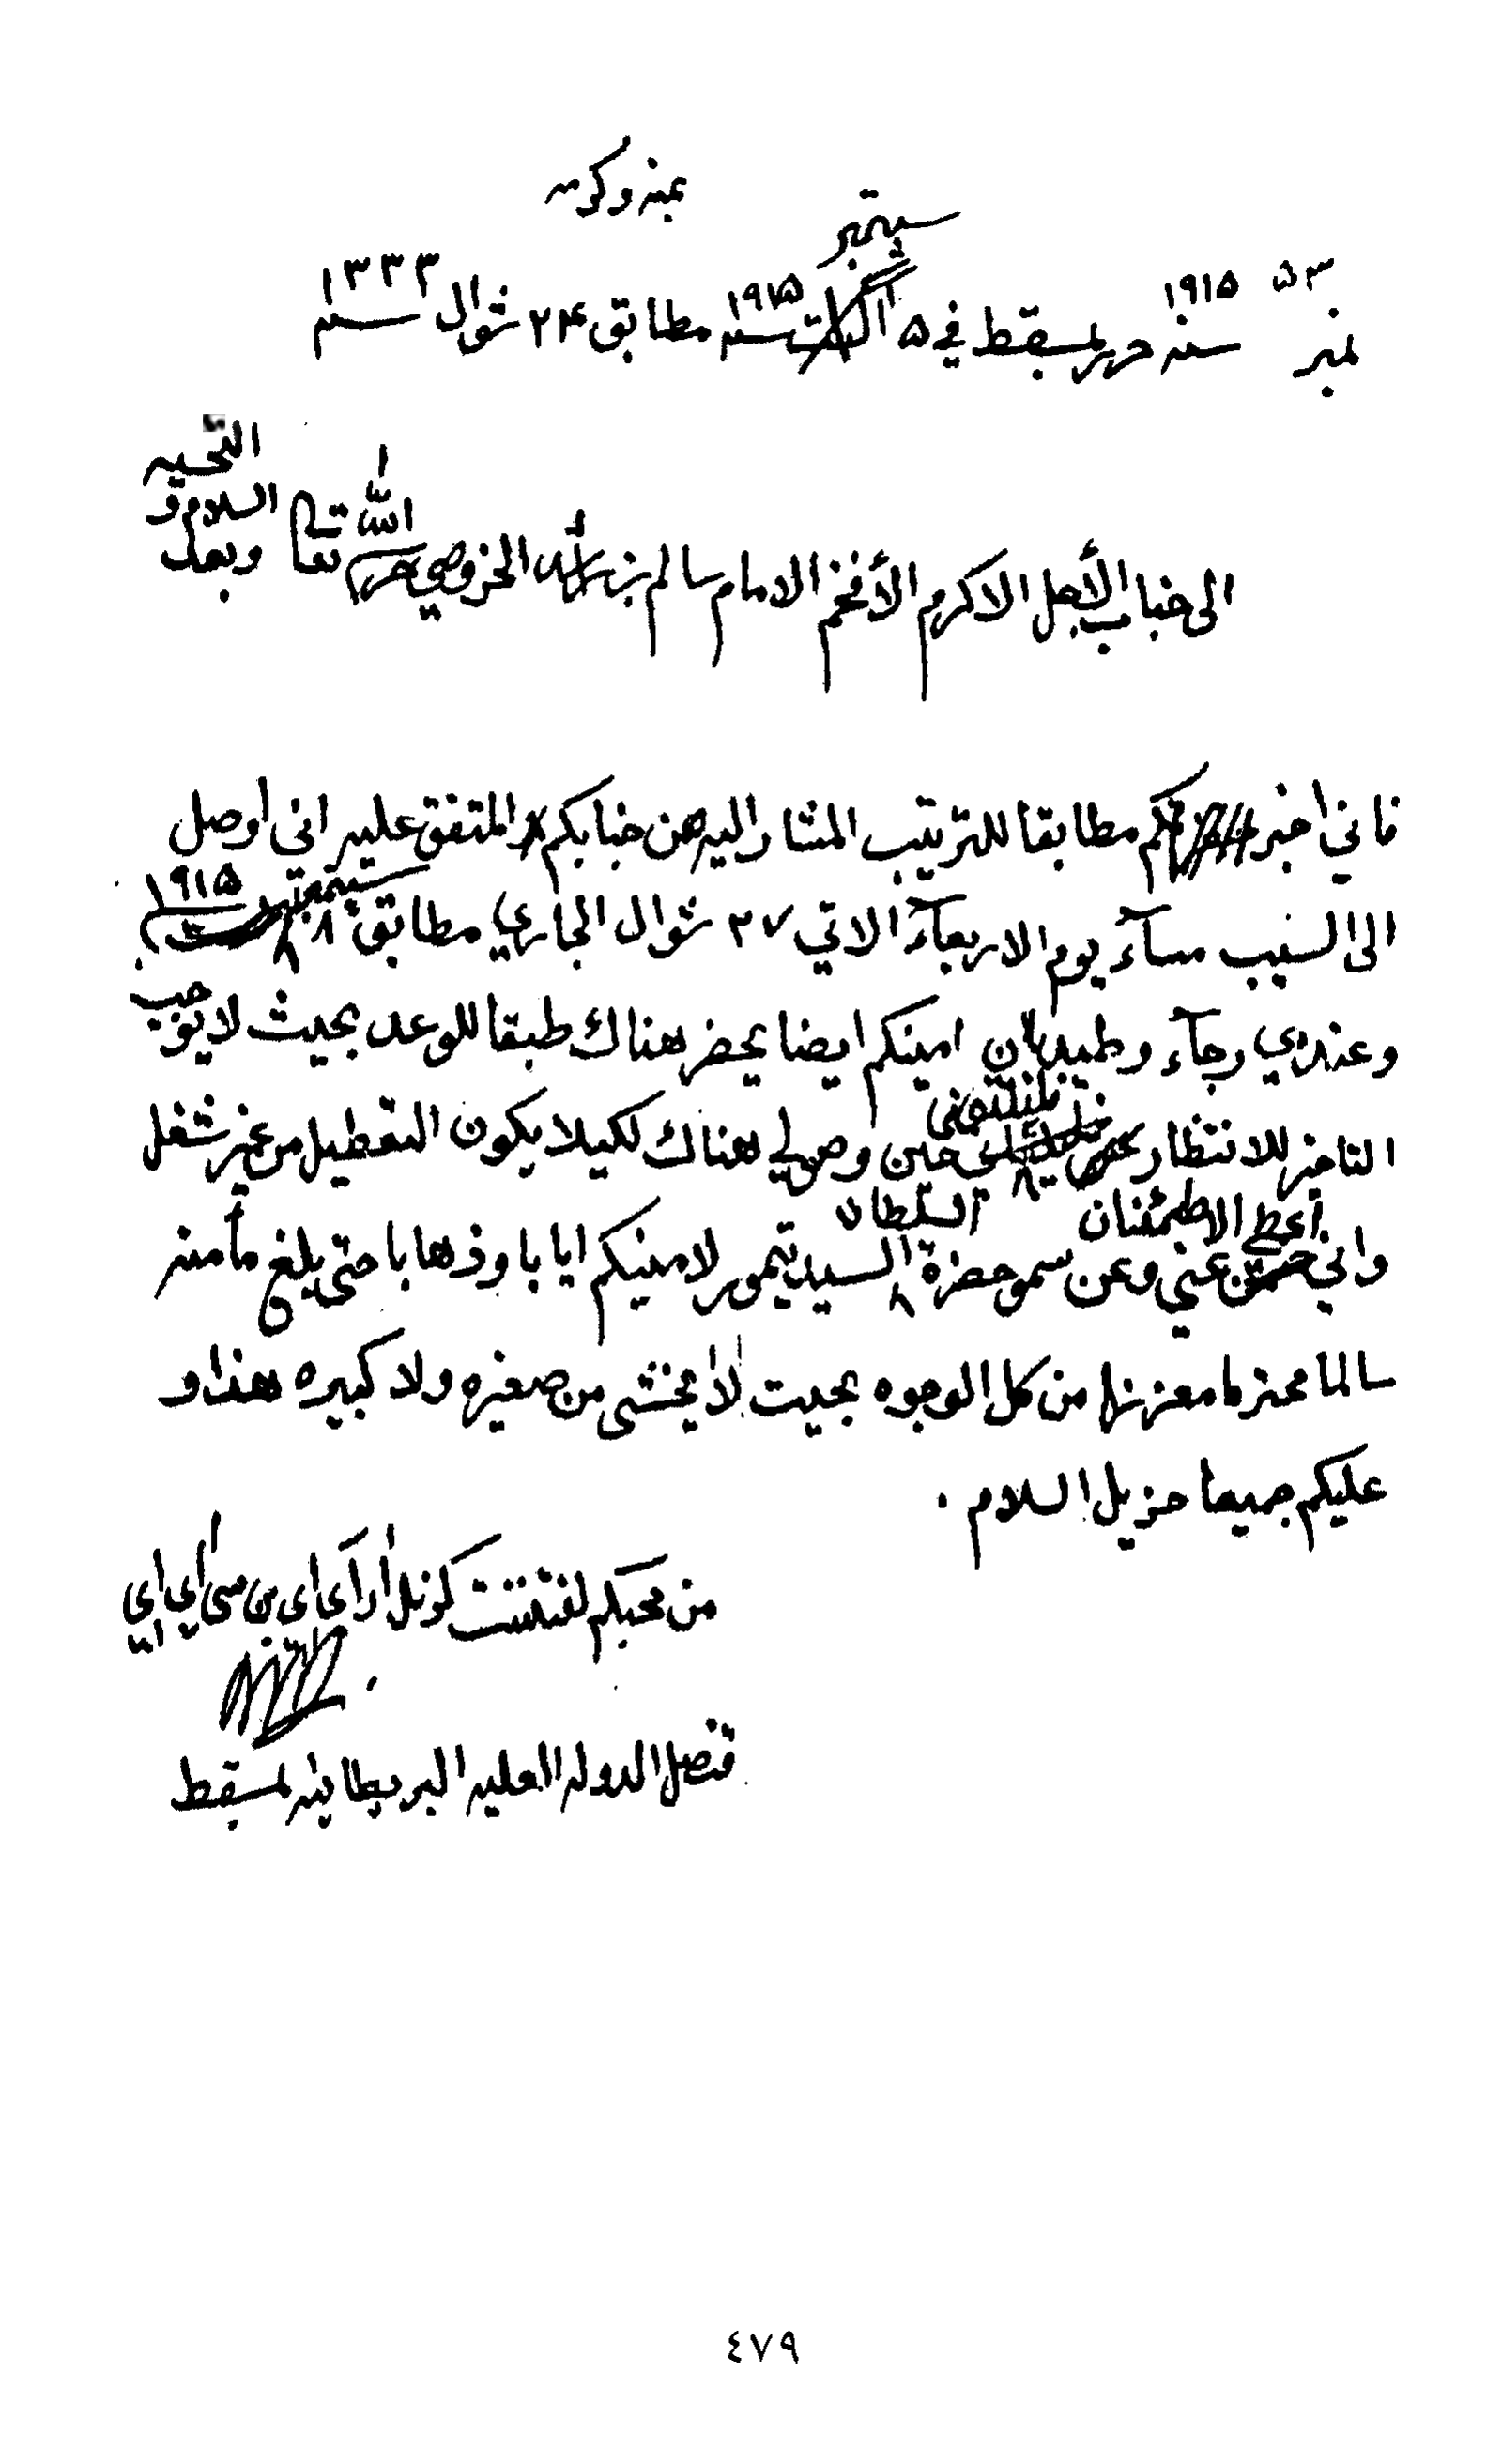 بمنه وكرمه
سپتمبر
نمبر ۵۳ سنه ١٩١۵ حرر بمسقط في ۵ اگست سنه ١٩١۵ مطابق ٢۴ شوال سنه ١٣٣٣
الى جناب الأجل الاكرم الأفخم الامام سالم بن راشد الخروصي سلمه الله تعا وبعد السلام و التحيه
فاني اخبر كم مطابقا للترتيب المشار اليه من جنابكم المتفق عليه اني اوصل
الى السيب مسآء يوم الاربعآء الاتي ٢٧ شوال الجاري مطابق ٨ سپتمبر ١٩١۵
وعندي رجآء وطيد بان امينكم ايضا يحضر هناك طبقا للوعد بحيث لا يوجب
التاخر للانتظار حين وصولي هناك لكيلا يكون التعطيل من غير شغل
أعطي الاطمئنان السلطان
واني عني وعن سمو حضرة السيد تيمور لامينكم ايابا وذهابا حتى يبلغ مأمنه
سالما محترما معززا من كل الوجوه بحيت لا يخشى من صغيره ولا كبيره هذا و
عليكم جميعا جزيل السلام .
من محبكم لفتننت كرنل ار اى اى بن سي اي اي
قنصل الدوله العليه البريطانيه بمسقط
٤٧٩